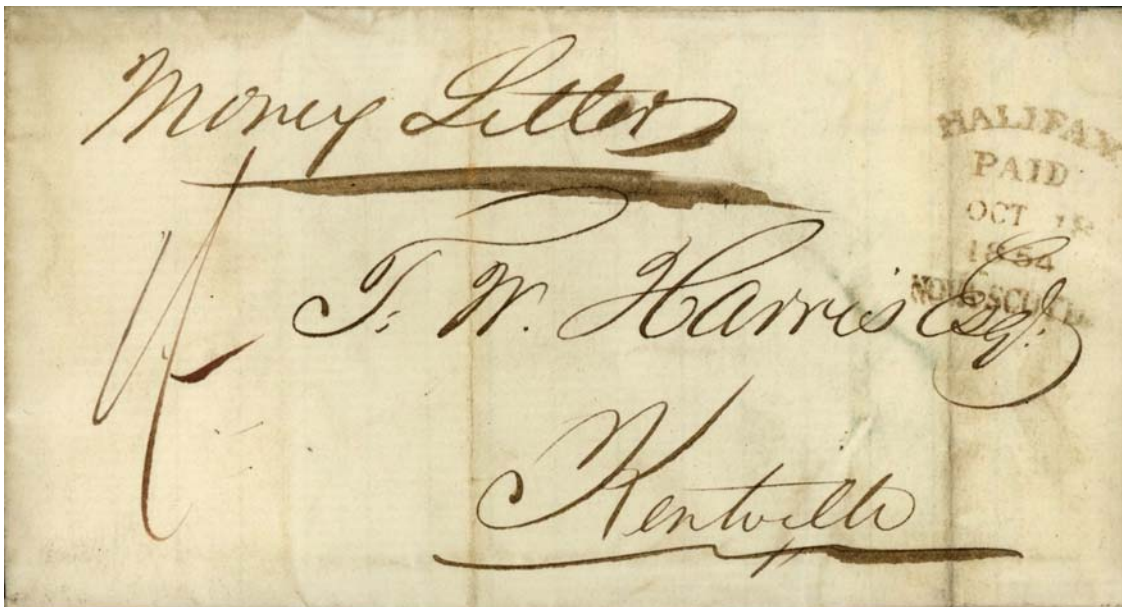 Money Letter
HALIFAX
PAID
OCT 18
1854
NOVA SCOTIA
T. W. Harris Esqr.
Kentville